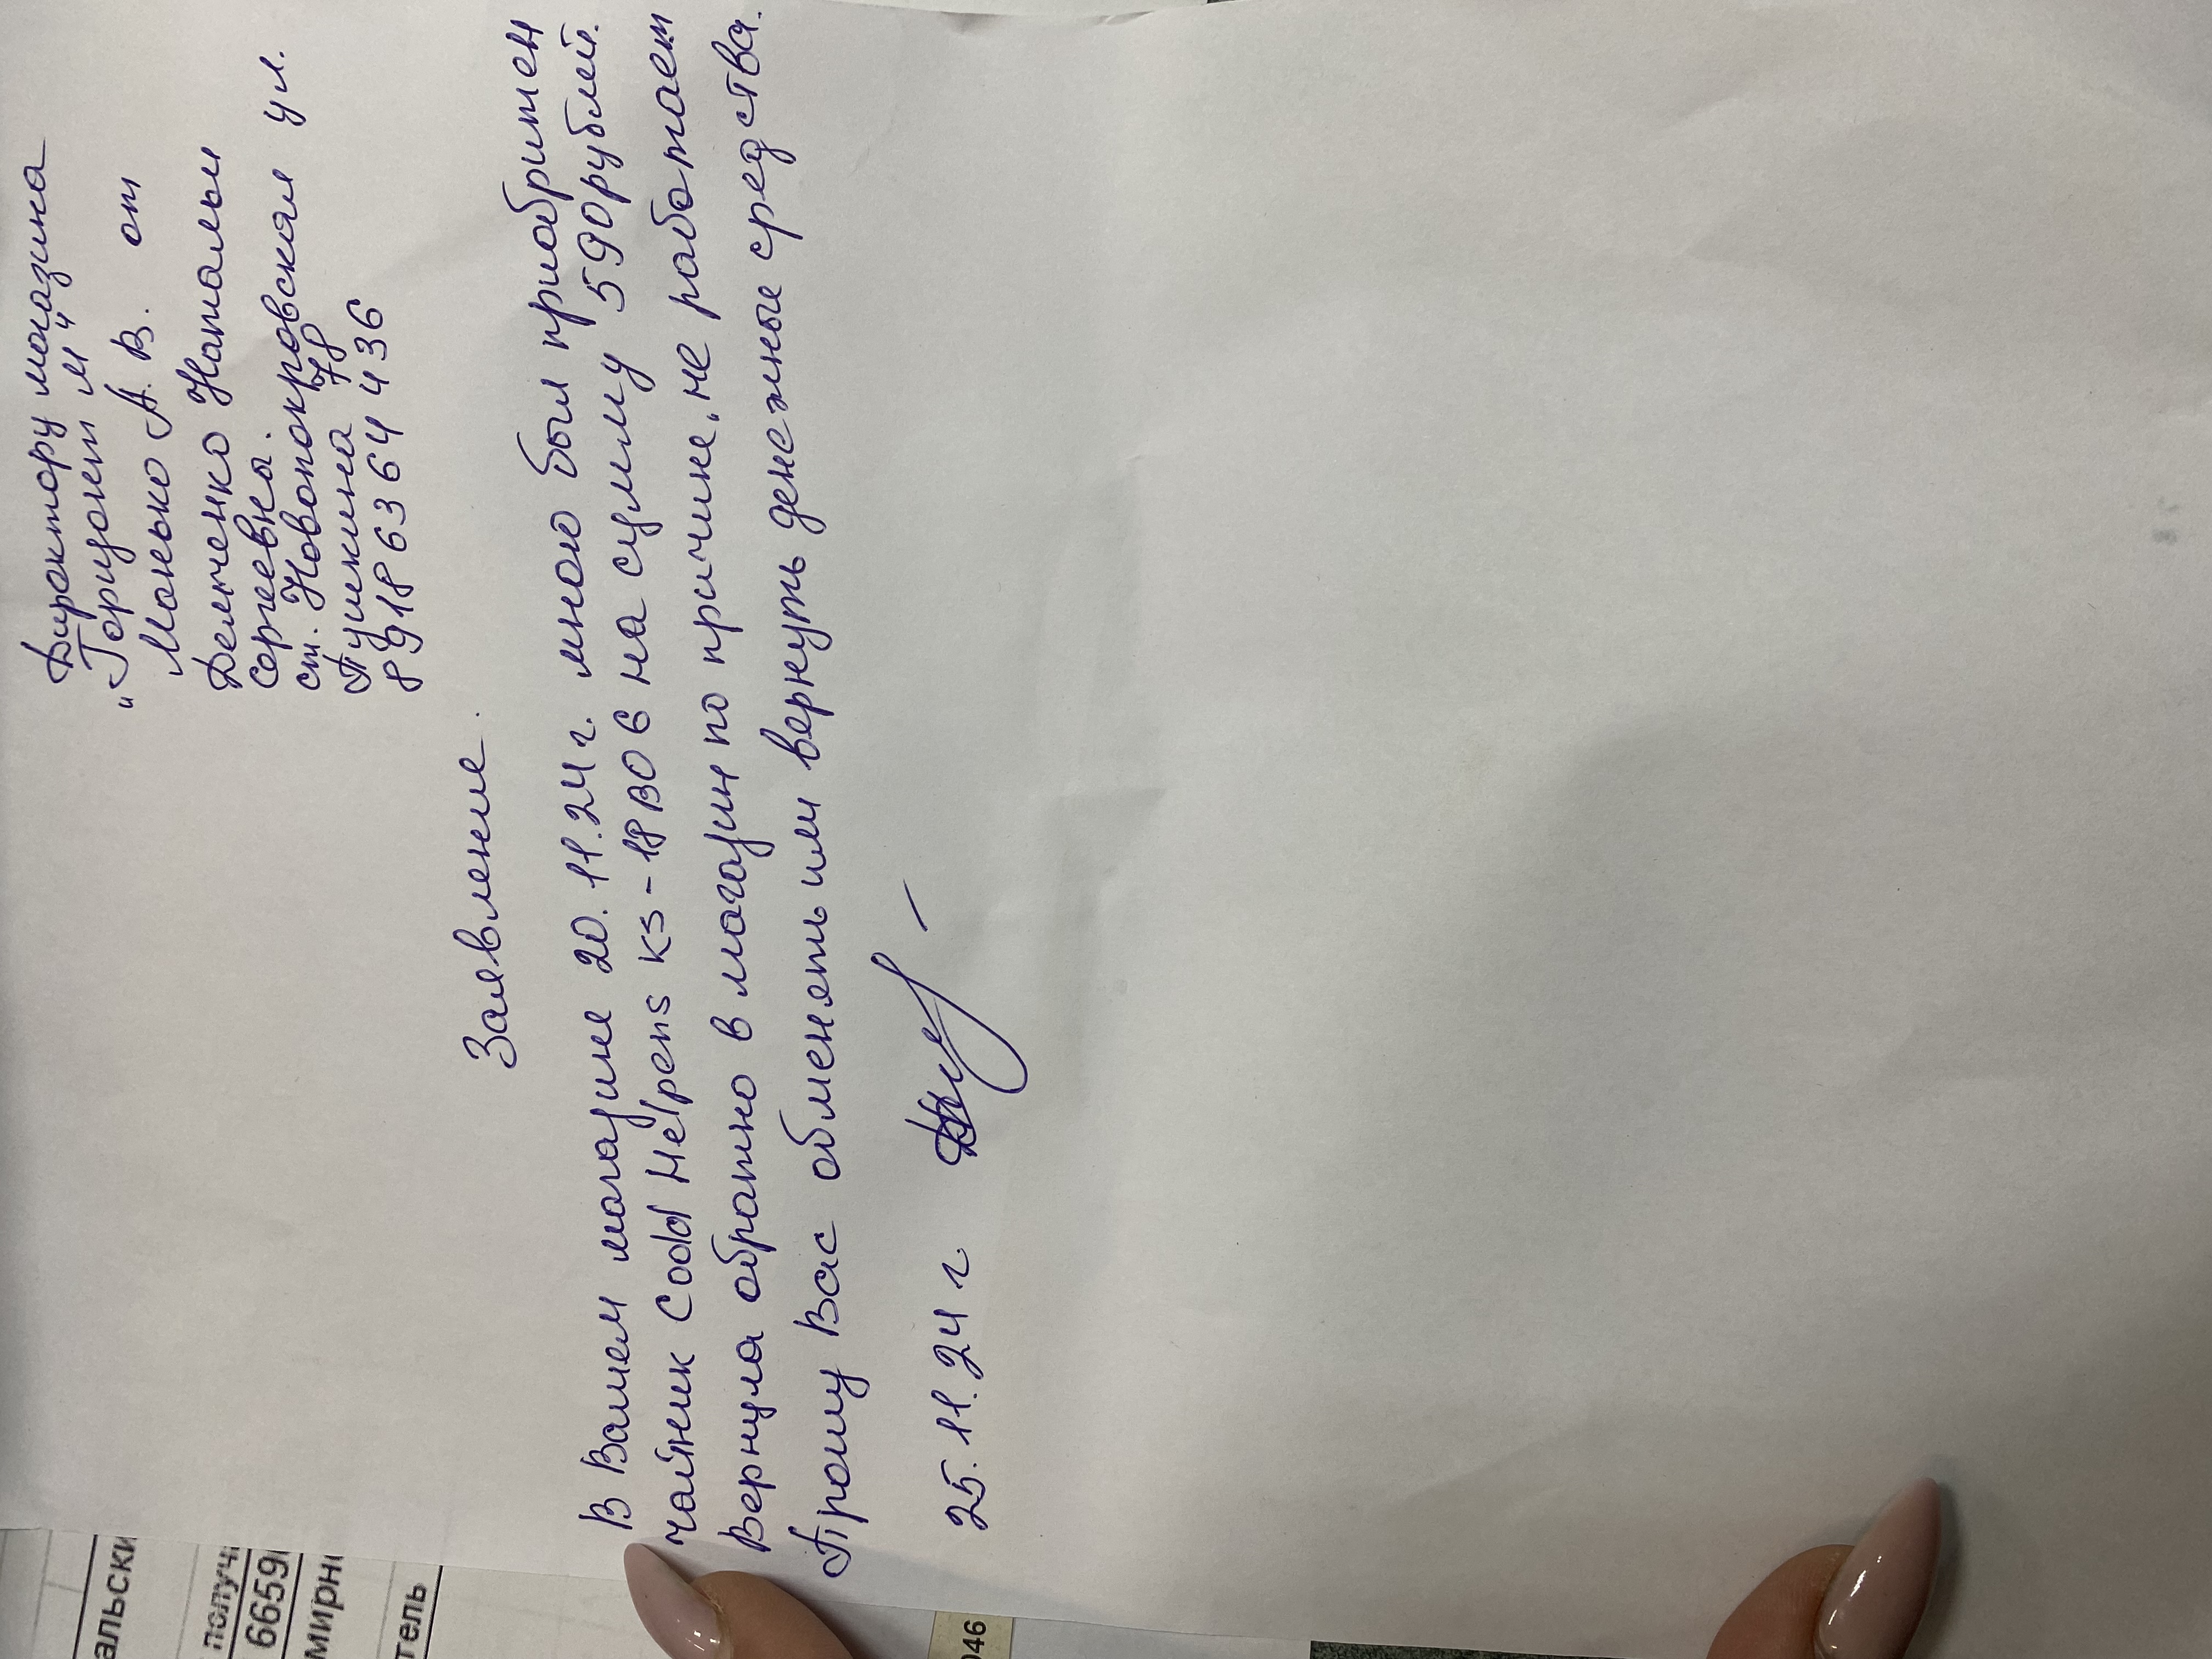 Директору магазина
"Горизонт м"
Монько А. В. от
Демченко Натальи
Сергеевны.
ст. Новопокровская ул.
Пушкина 78
8918 6364 436
Заявление.
В Вашем магазине 20.11.24 г. мною был приобритен
чайник Coold Helpens KS-18B06 на сумму 590 рублей.
Вернула обратно в магазин по причине, не работает
Прошу Вас обменять или вернуть денежные средства.
25.11.24 г
альски
получ
6659
мирн
тель
046